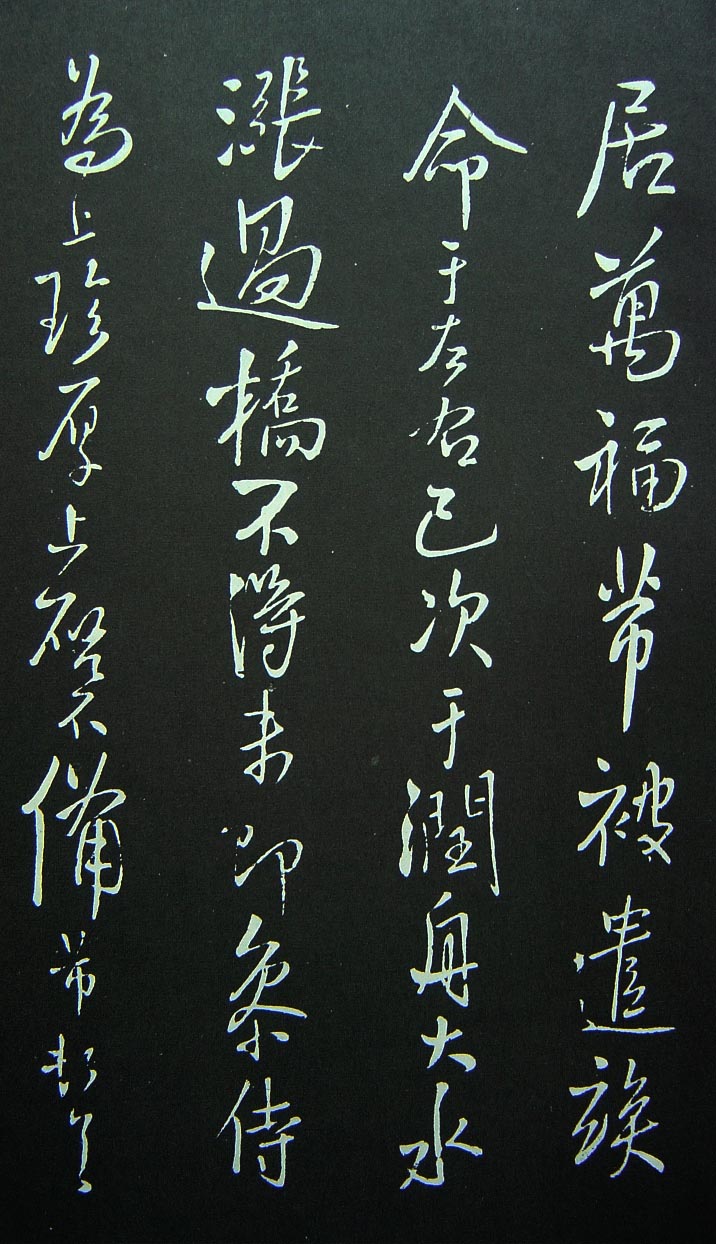 居萬福芾被遣竢
命于左右已次于潤舟大水
漲過橋不得未即參侍
為上珍厚上啓不備芾頓首